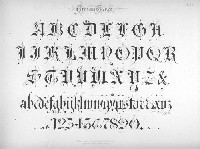 ABCDEFGH
IJKLMNOPQR
STUVWXYZ&
abcdefghijklmnopqrstuvwxyz
1234567890.